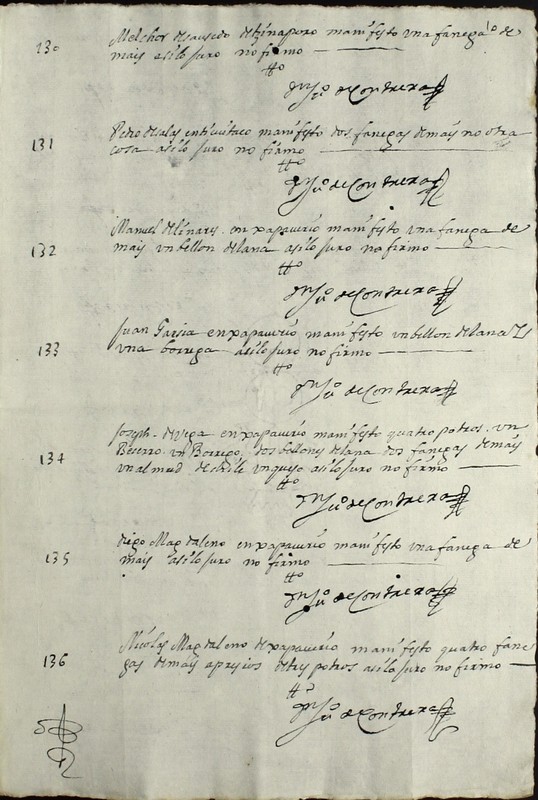 130 Melchor de sausedo de tzinaparo manifesto una fanega de
mais asi lo juro no firmo
Ju.o de Contreras
131 Pedro de salas en ticuitaco manifesto dos fanegas de mais no otra
cosa asi lo juro no firmo
Ju.o de Contreras
132 Manuel de linares en xapacurio manifesto una fanega de
mais un bellon de lana asi lo juro no firmo
Ju.o de Contreras
133 Juan Garsia en xapacurio manifesto un bellon de lana Y
una borrega asi lo juro no firmo
Ju.o de Contreras
134 Joseph de Vega en xapacurio manifesto quatro potros un
Beserro un Borrego dos bellones de lana dos fanegas de mais
un almud de chile un queso asi lo juro no firmo
Ju.o de Contreras
135 diego Magdaleno en xapacurio manifesto una fanega de
mais asi lo juro no firmo
Ju.o de Contreras
136 Nicolas Magdaleno de xapacurio manifesto quatro fane
gas de mais apresios de tres potros asi lo juro no firmo
Ju.o de Contreras